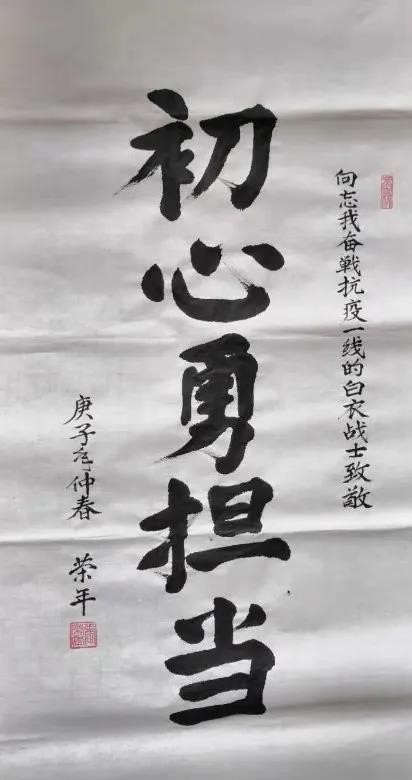 向忘我奋战抗疫一线的白衣战士致敬
初心勇担当
庚子年仲春 荣年